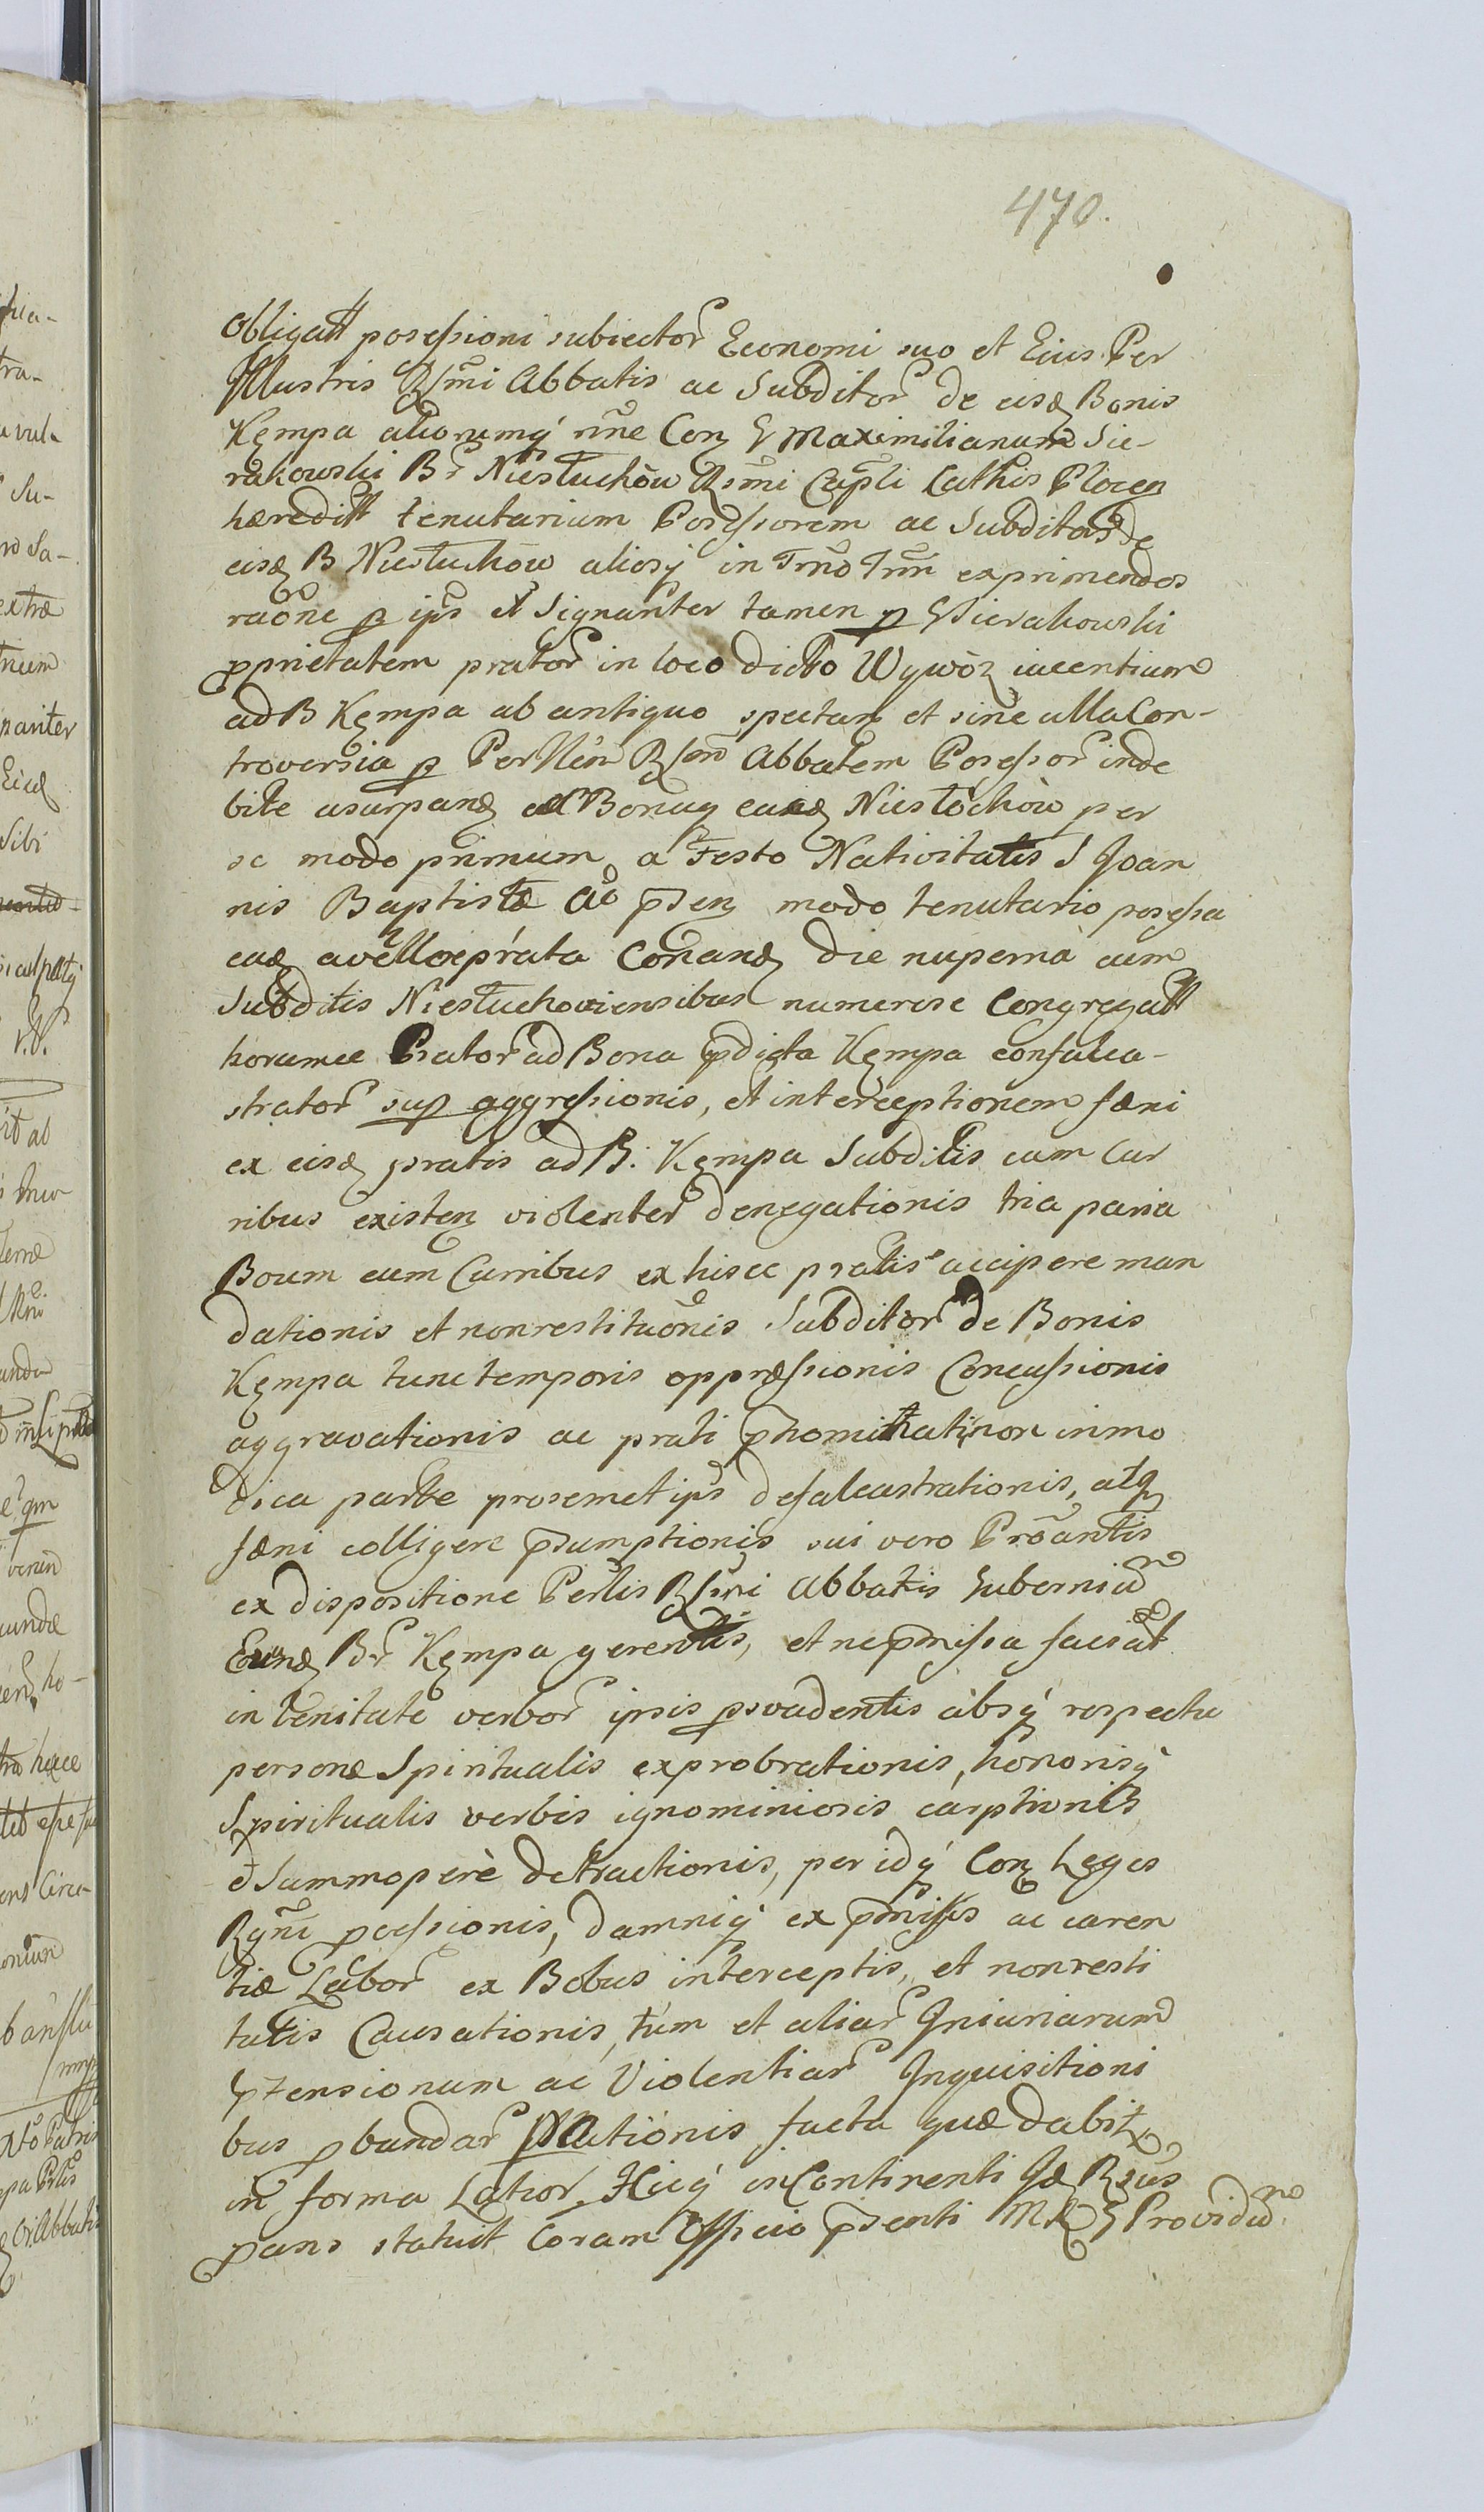 470.
obligatt possessioni subiector Economi suo et Eius Per
Illustris Rssmi Abbatis ac Subditor de eisd Bonis
Kempa aliorumq nne Con G Maximilianum Sie-
rakowski Br Niestuchòw Rssmi Capli Cathis Plocen
hæreditt tenutarium Possessorem ac Subditos de
eisd B Niestuchòw aliosq in Trno Trm exprimendos
raone p ips et Signanter tamen p G Sierakowski
pprietatem prator in loco dicto Wywòz iacentium
ad B Kempa ab antiquo spectan et sine ulla Con-
troversia p PerIllem Rssm Abbatem Possessor inde
bite usurpand ad Bonuq eand Niestòchòw per
se modo primum a Festo Nativitatis S Joan
nis Baptistæ Ao psen modo tenutario possessa
ead avellere prata Conand die nuperna cum
Subditis Niestuchoviensibus numerose Congregatt
horumce Prator ad Bona pdicta Kempa confalca-
strator sup aggressionis, et interceptionem fæni
ex eisd pratis ad B. Kempa Subditis cum Cur
ribus existen violenter denegationis tria paria
Boum cum Curribus ex hisce pratis accipere man
dationis et nonrestituonis Subditor de Bonis
Kempa tunc temporis oppræssionis Concussionis
aggravationis ac prati phominati non inmo
dica parte prosemet ips defalcastrationis, atq
fæni colligere psumptionis sui vero Proantis
ex dispositione Perlis Rssmi Abbatis Guberniu
Eund Br Kempa gerentis, et ne pmissa faciat
in lenitate verbor ipsis psvadentis absq respectu
personæ Spiritualis exprobrationis, honorisq
Spiritualis verbis ignominiosis carptionis
et Summoperè detractionis, per idq Con Leges
Rgni pcessionis, damniq ex pmissis ac caren
tiæ Labor ex Bobus interceptis, et nonresti
tutis Causationis, tum et aliar Iniuriarum
ptensionum ac Violentiar Inquisitioni
bus pbandar Prationis facta quæ dabit
in forma Latior. Hicq inContinenti Id Rzus
pans statuit Coram Officio psenti MR G Providu